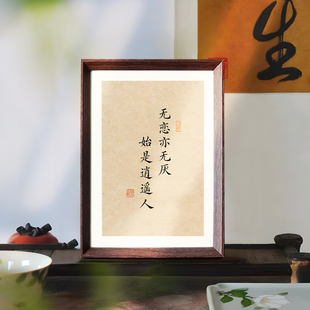 无恋亦无厌
始是逍遥人
生